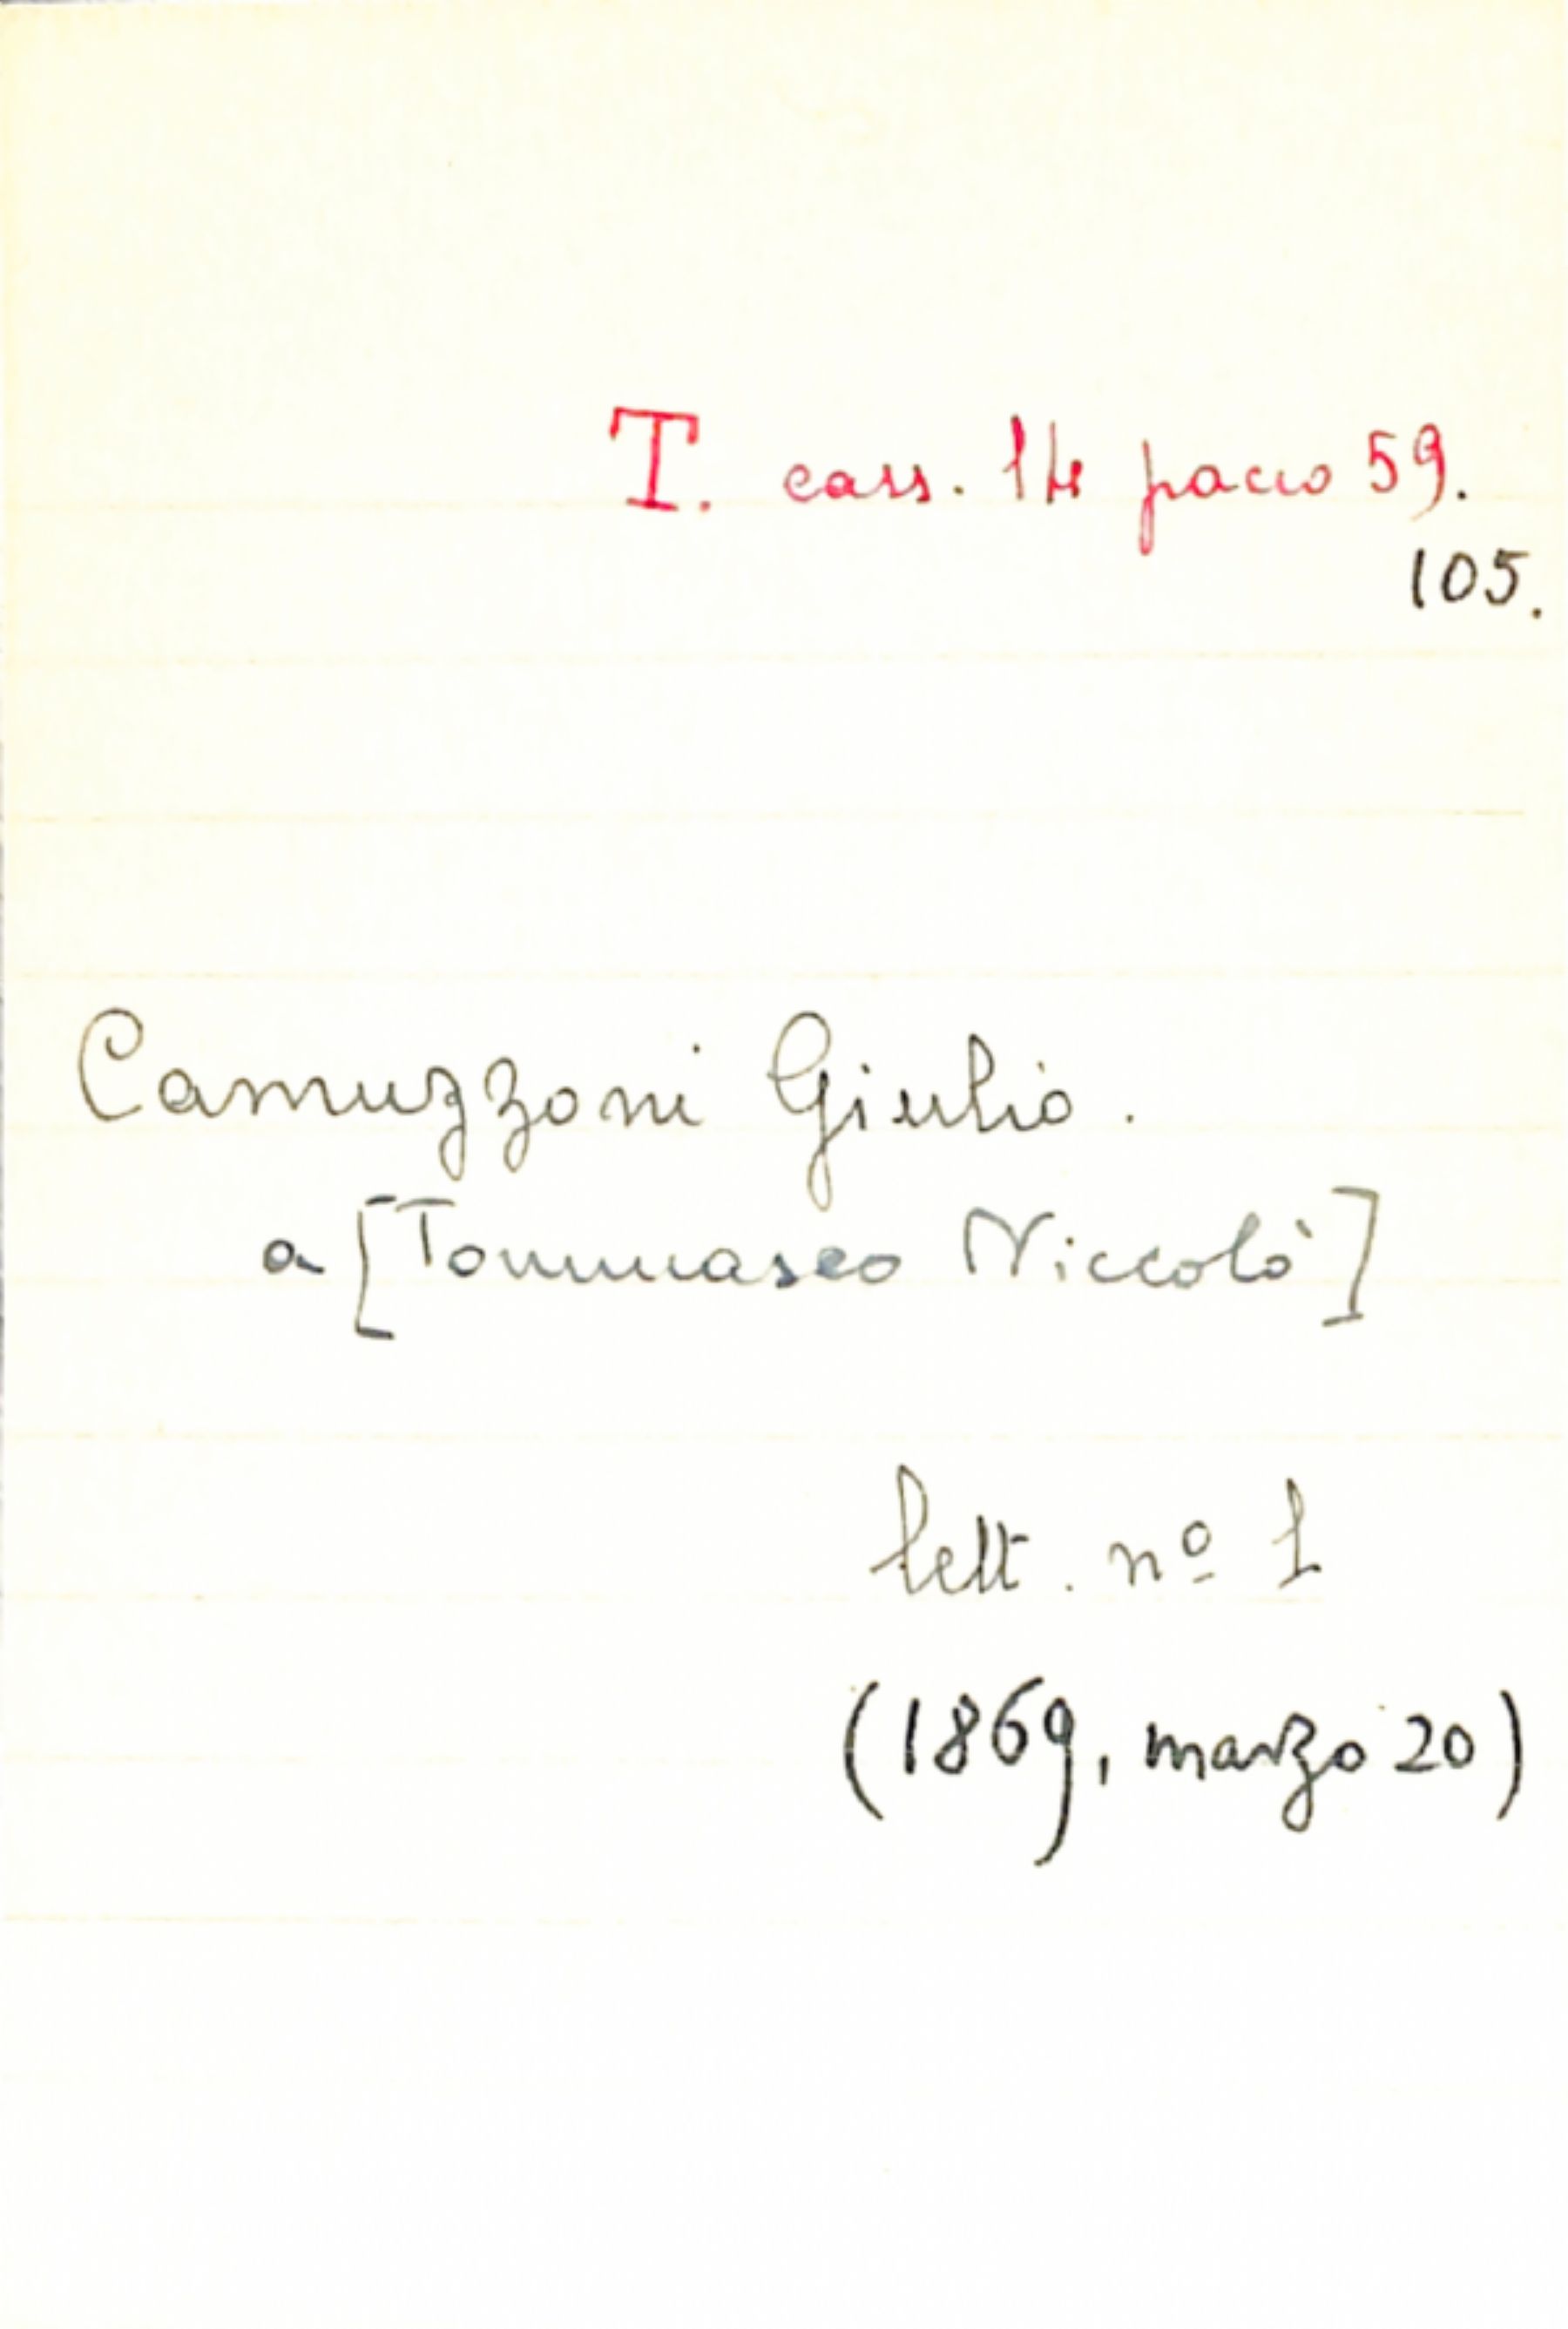 T. cass. 14 pacco 59.
105.
Camuzzoni Giulio.
a [Tommaseo Niccolò]
lett. nº 1
(1869, marzo 20)